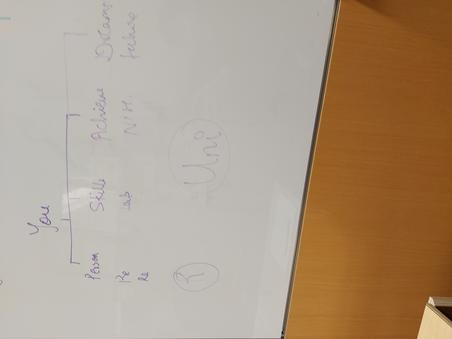 You
Person Skills Achieve Dreams
Re Lab N.H. future
Re
R Uni